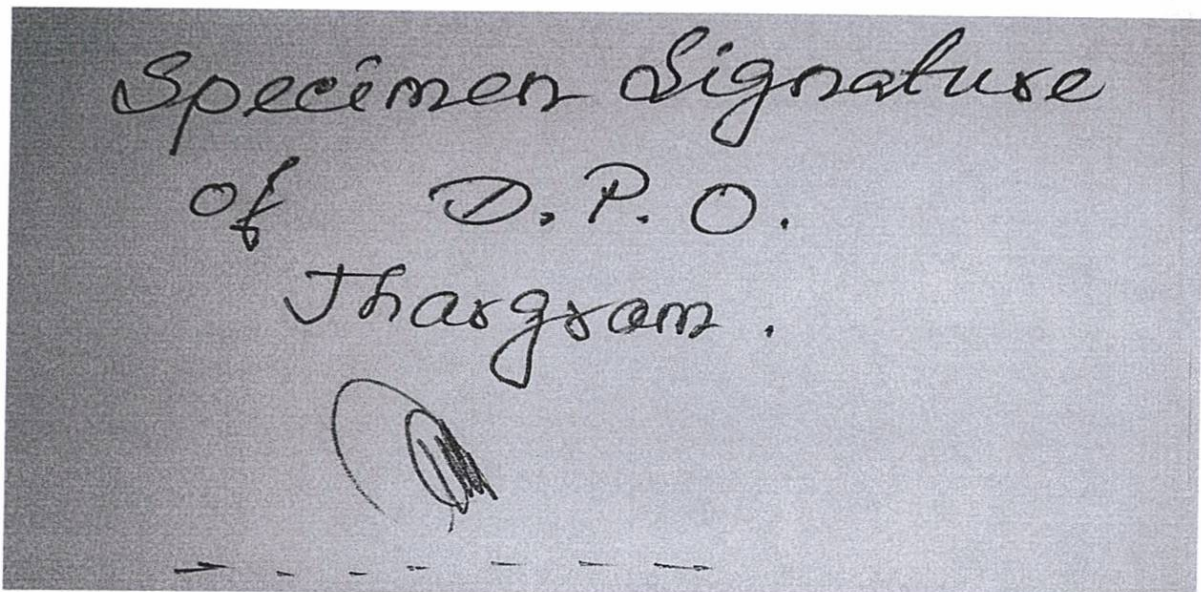 Specimen Signature
of D. P. O.
Jhargram.